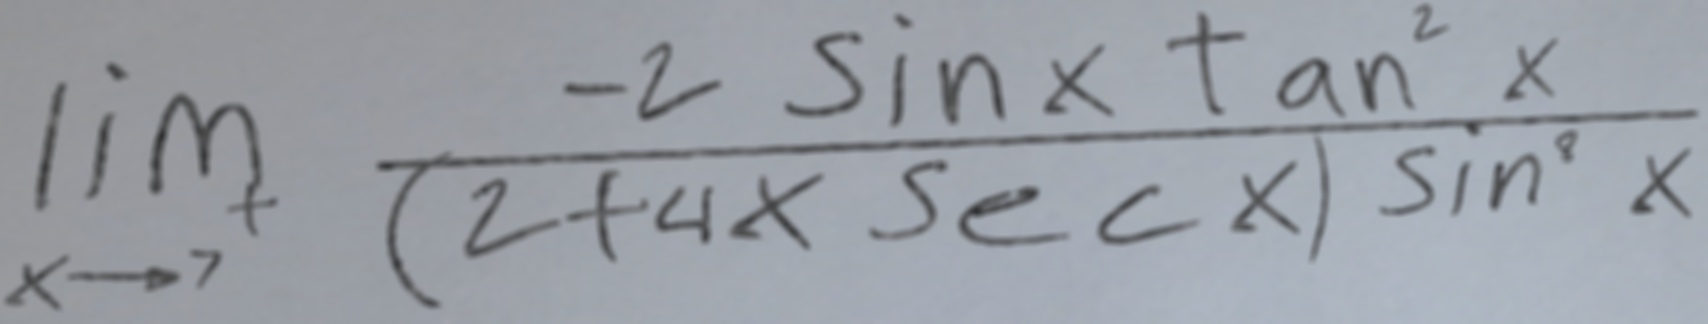 lim x→7⁺ (-2 sin x tan² x) / ((2+4x sec x) sin⁸ x)